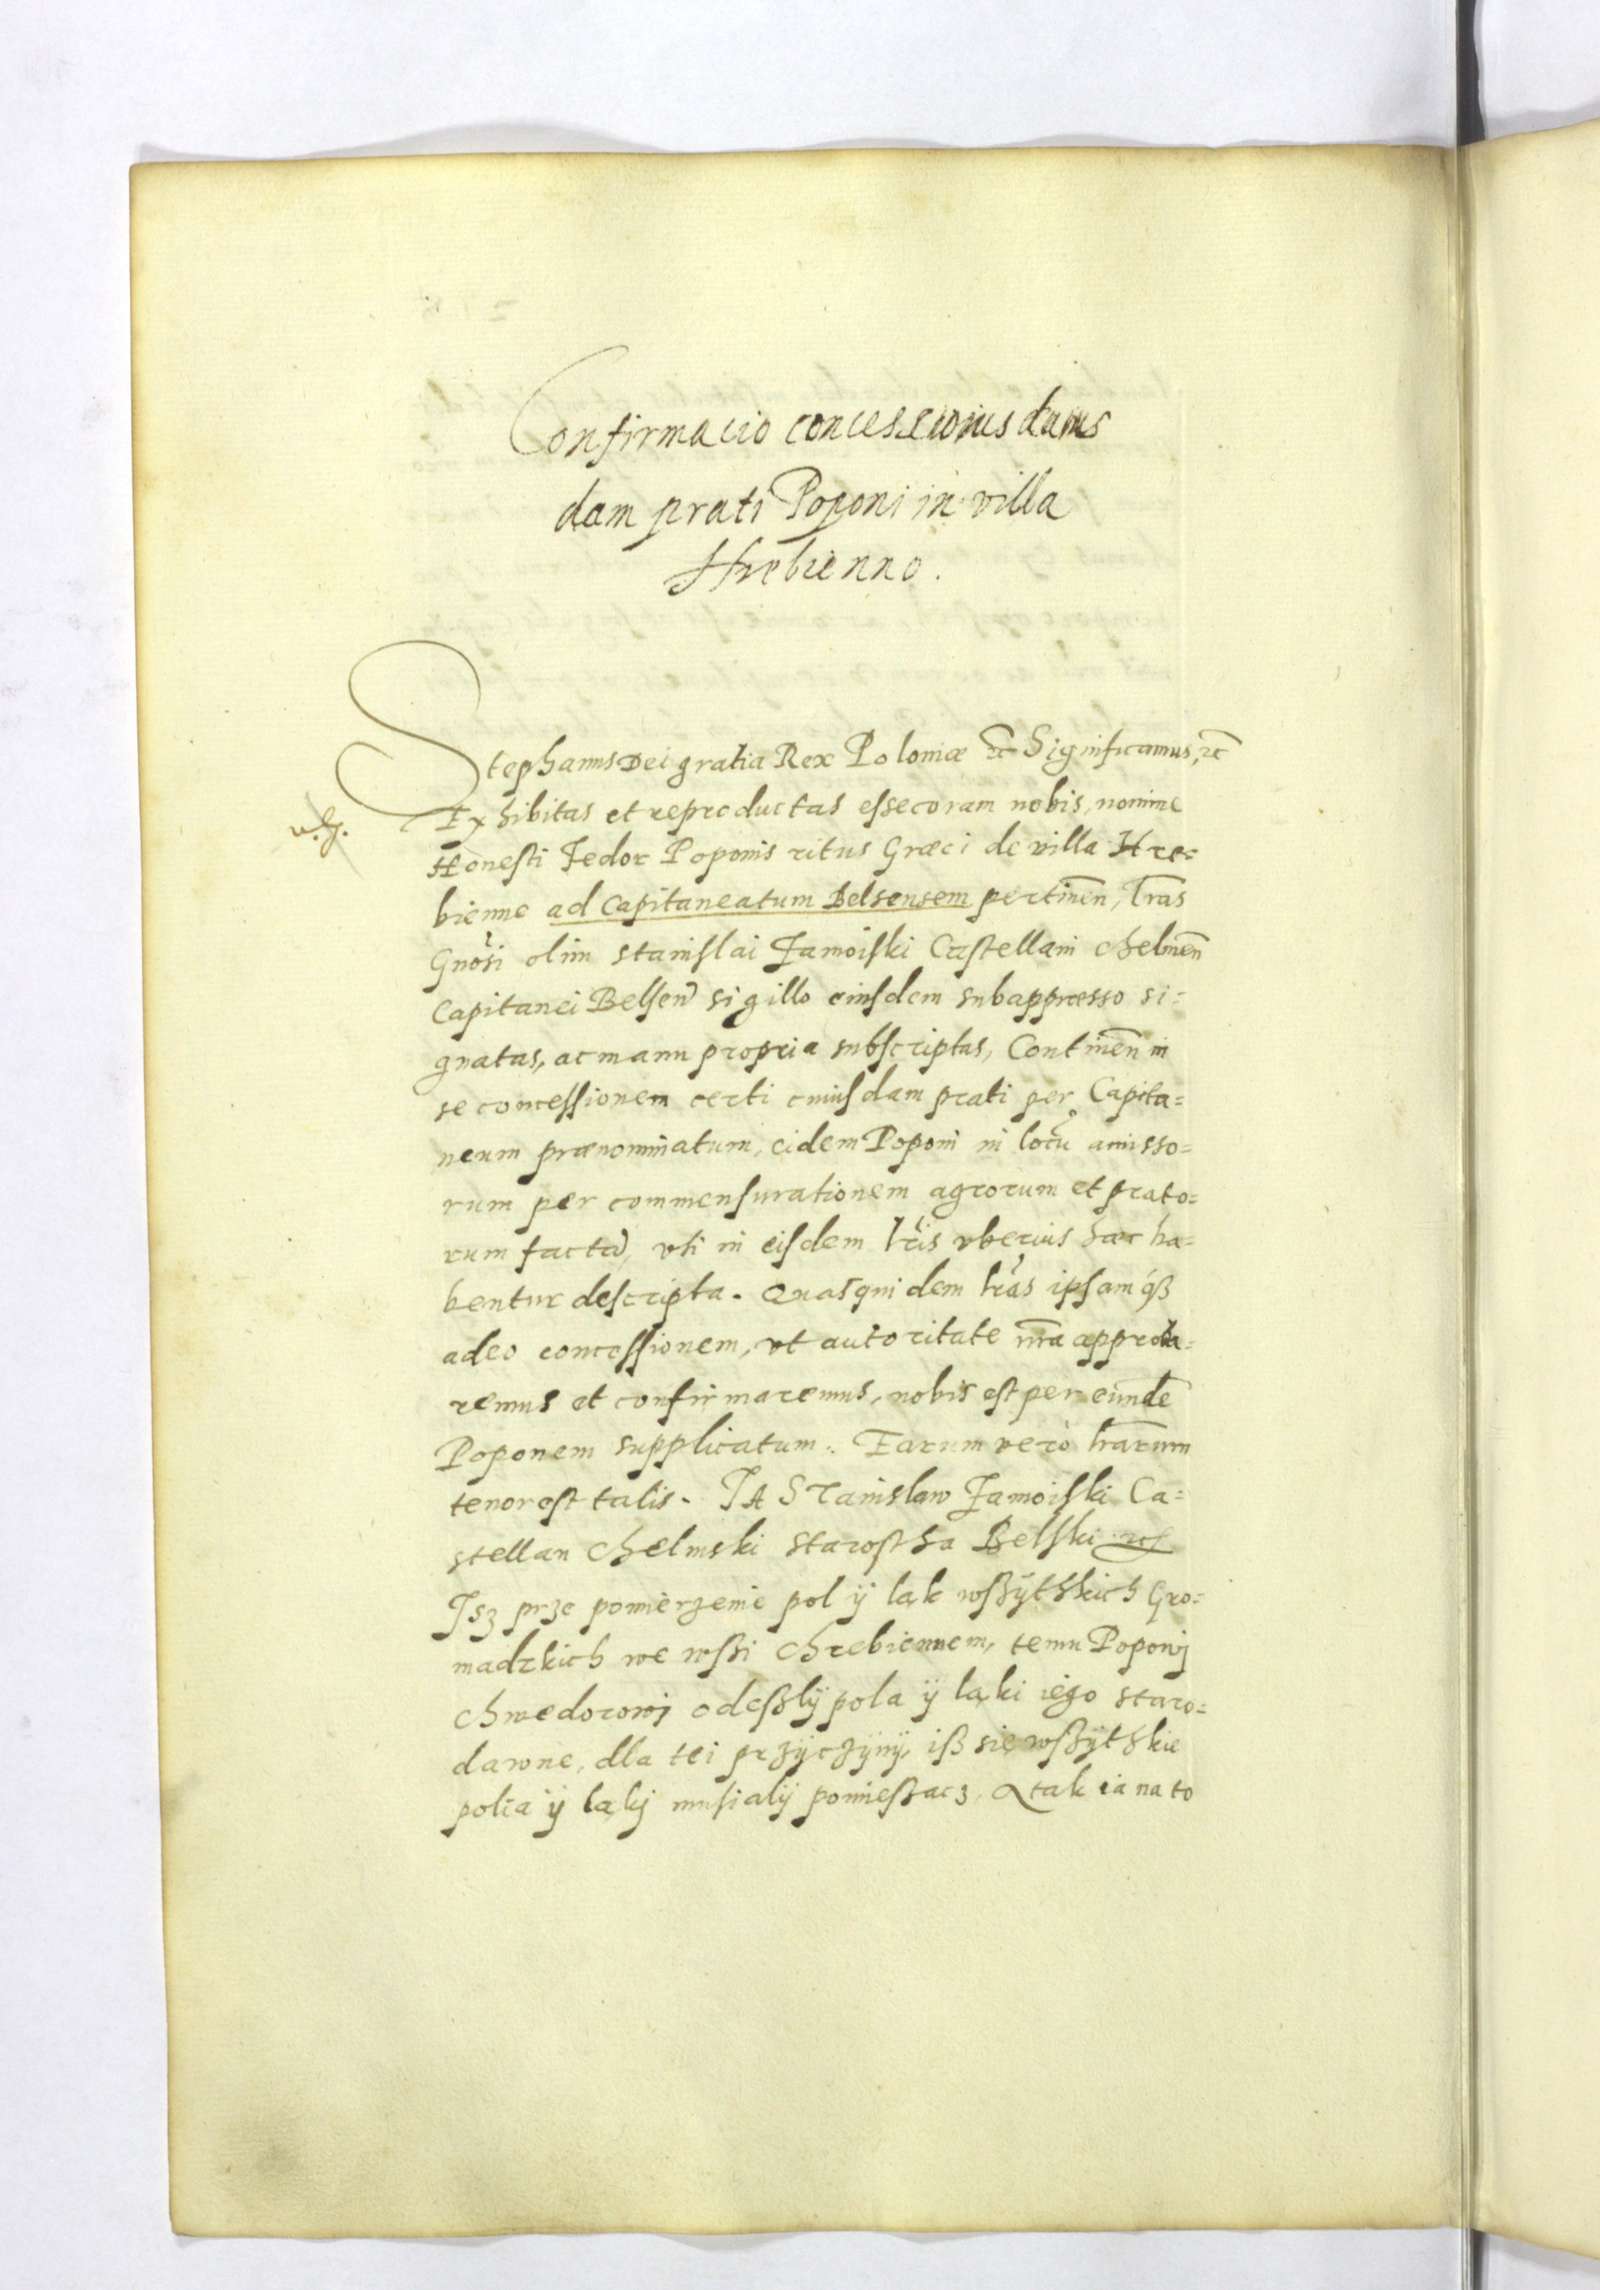 Confirmacio concessionis cuius
dam prati Poponi in villa
Hrebienno.
Stephanus Dei gratia Rex Poloniæ etc Significamus, etc
Exhibitas et reproductas esse coram nobis, nomine
Honesti Fedor Poponis ritus Græci de villa Hre=
bienne ad Capitaneatum Belsensem pertinen̄, lr̄as
Gnōsi olim Stanislai Zamoiski Castellani Chelmen̄
Capitanei Belsen̄ sigillo eiusdem subappresso si=
gnatas, ac manu propria subscriptas, Continen̄ in
se concessionem certi cuiusdam prati per Capita=
neum prænominatum, eidem Poponi in locū amisso=
rum per commensurationem agrorum et prato=
rum factā, vti in eisdem lr̄is vberius hæc ha=
bentur descripta. Quasquidem lr̄as ipsamqȝ
adeo concessionem, vt autoritate nr̄a approba=
remus et confirmaremus, nobis est per eundē
Poponem supplicatum. Earum verò lr̄arum
tenor est talis. JA STanislaw Zamoiski Ca=
stellan Chelmski Starostha Belski etc
Jsz prze pomierzenie pol ÿ lak wßÿthkich Gro=
madzkich we wßi Chrebiennem, temu Poponj
Chwedorowj odeßlÿ pola ÿ ląki iego staro=
dawne, dla tei przÿczÿnÿ, iß się wßÿthkie
polia ÿ ląkj musialÿ pomießacz, A tak ia na to